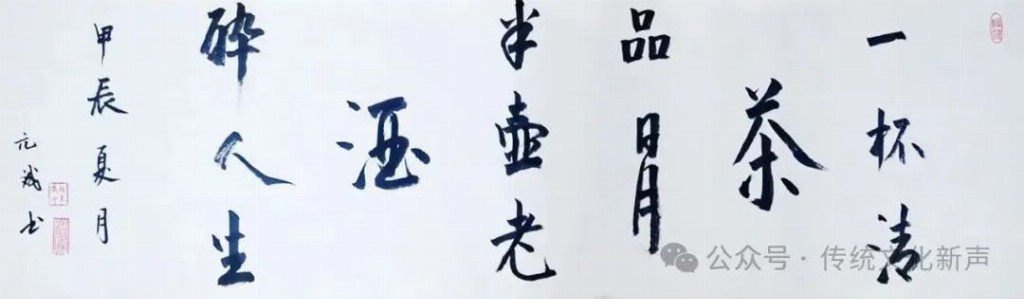 一杯清
茶
品日月
半壶老
酒
醉人生
甲辰夏月
元斌书
公众号·传统文化新声